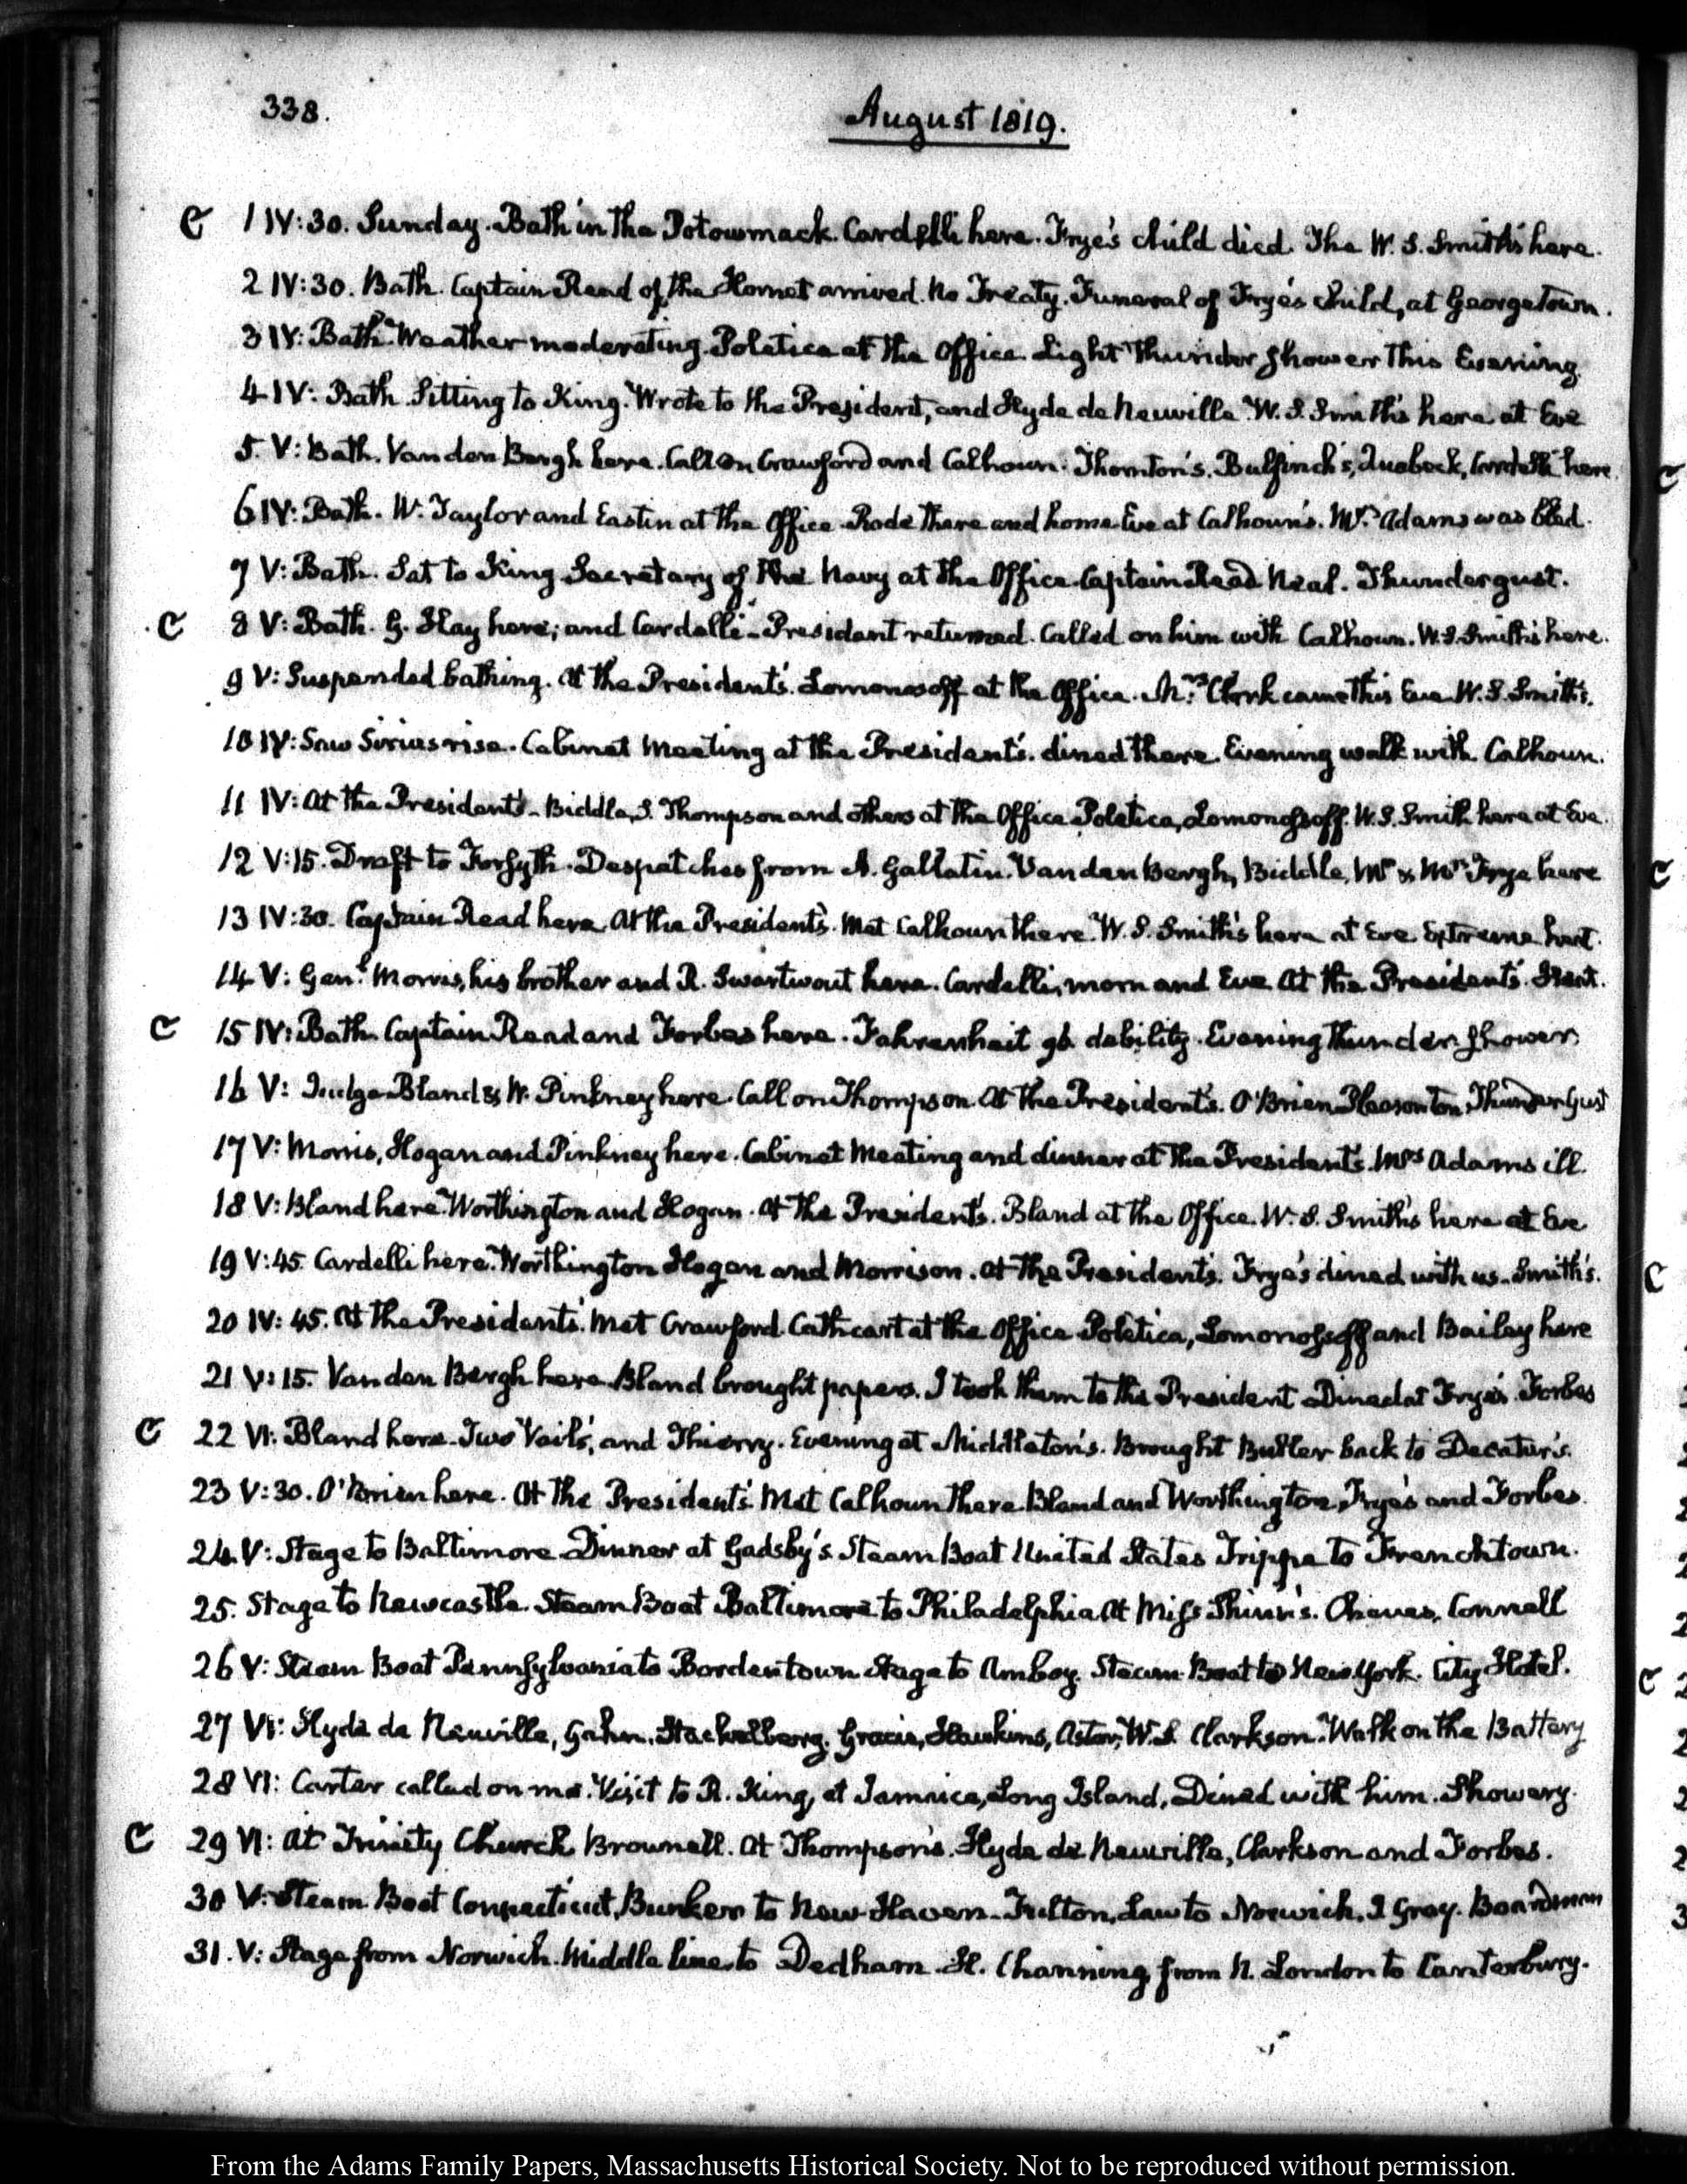 338.
August 1819.
C 1 IV:30. Sunday. Bath in the Potowmack. Cardelli here. Frye's child died. The W. S. Smith's here.
2 IV:30. Bath. Captain Read of the Hornet arrived. No Treaty. Funeral of Frye's child, at Georgetown.
3 IV: Bath. Weather moderating. Poletica at the Office. Light Thunder shower this Evening.
4 IV: Bath. Sitting to King. Wrote to the President, and Hyde de Neuville. W. S. Smith's here at Eve
5. V: Bath. Vanden Bergh here. Call on Crawford and Calhoun. Thornton's. Bulfinch's, Cardelli here.
6 IV: Bath. W. Taylor and Eastin at the Office. Rode there and home. Eve at Calhoun's. Mrs. Adams was bled.
7 V: Bath. Sat to King. Secretary of the Navy at the Office. Captain Read. Neal. Thundergust.
C 8 V: Bath. G. Hay here; and Cardelli. President returned. Called on him with Calhoun. W. S. Smith's here.
9 V: Suspended bathing. At the President's. Lomonosoff at the Office. Mrs. Clark came this Eve. W. S. Smith's.
10 IV: Saw Sirius rise. Cabinet Meeting at the President's. dined there. Evening walk with Calhoun.
11 IV: At the President's. Biddle, S. Thompson and others at the Office. Poletica, Lomonosoff. W. S. Smith here at Eve.
12 V:15. Draft to Forsyth. Despatches from A. Gallatin. Vanden Bergh, Biddle, Mr & Mrs Frye here
13 IV:30. Captain Read here. At the President's. Met Calhoun there. W. S. Smith's here at Eve. Extreme heat.
14 V: Genl. Morris, his brother and R. Swartwout here. Cardelli, morn and Eve. At the President's. Heat.
C 15 IV: Bath. Captain Read and Forbes here. Fahrenheit 96. debility. Evening Thunder shower.
16 V: Judge Bland & W. Pinkney here. Call on Thompson. At the President's. O'Brien. Pleasonton. Thunder Gust
17 V: Morris, Hogan and Pinkney here. Cabinet Meeting and dinner at the President's. Mrs Adams ill.
18 V: Bland here. Worthington and Hogan. At the President's. Bland at the Office. W. S. Smith's here at Eve
19 V:45. Cardelli here. Worthington Hogan and Morrison. At the President's. Frye's dined with us. Smith's.
20 IV:45. At the President's. Met Crawford. Cathcart at the Office. Poletica, Lomonosoff and Bailey here
21 V:15. Vanden Bergh here. Bland brought papers. I took them to the President. Dined at Frye's. Forbes
C 22 VI: Bland here. Two Vail's, and Thierry. Evening at Middleton's. Brought Butler back to Decatur's.
23 V:30. O'Brien here. At the President's. Met Calhoun there. Bland and Worthington, Frye's and Forbes.
24. V: Stage to Baltimore. Dinner at Gadsby's. Steam Boat United States Trippe to Frenchtown.
25. Stage to Newcastle. Steam Boat Baltimore to Philadelphia. At Miss Shinn's. Cheves, Connell
26 V: Steam Boat Pennsylvania to Bordentown. Stage to Amboy. Steam Boat to New York. City Hotel.
27 VI: Hyde de Neuville, Gahn. Stackelberg. Gracie, Hawkins, Astor, W. S. Clarkson. Walk on the Battery
28 VI: Carter called on me. Visit to R. King, at Jamaica, Long Island, Dined with him. Showery.
C 29 VI: At Trinity Church, Brownell. At Thompson's. Hyde de Neuville, Clarkson and Forbes.
30 V: Steam Boat Connecticut, Bunker to New-Haven. Fulton, Law to Norwich, I. Gray. Boardman
31. V: Stage from Norwich. Middle line to Dedham. H. Channing from N. London to Canterbury.
From the Adams Family Papers, Massachusetts Historical Society. Not to be reproduced without permission.